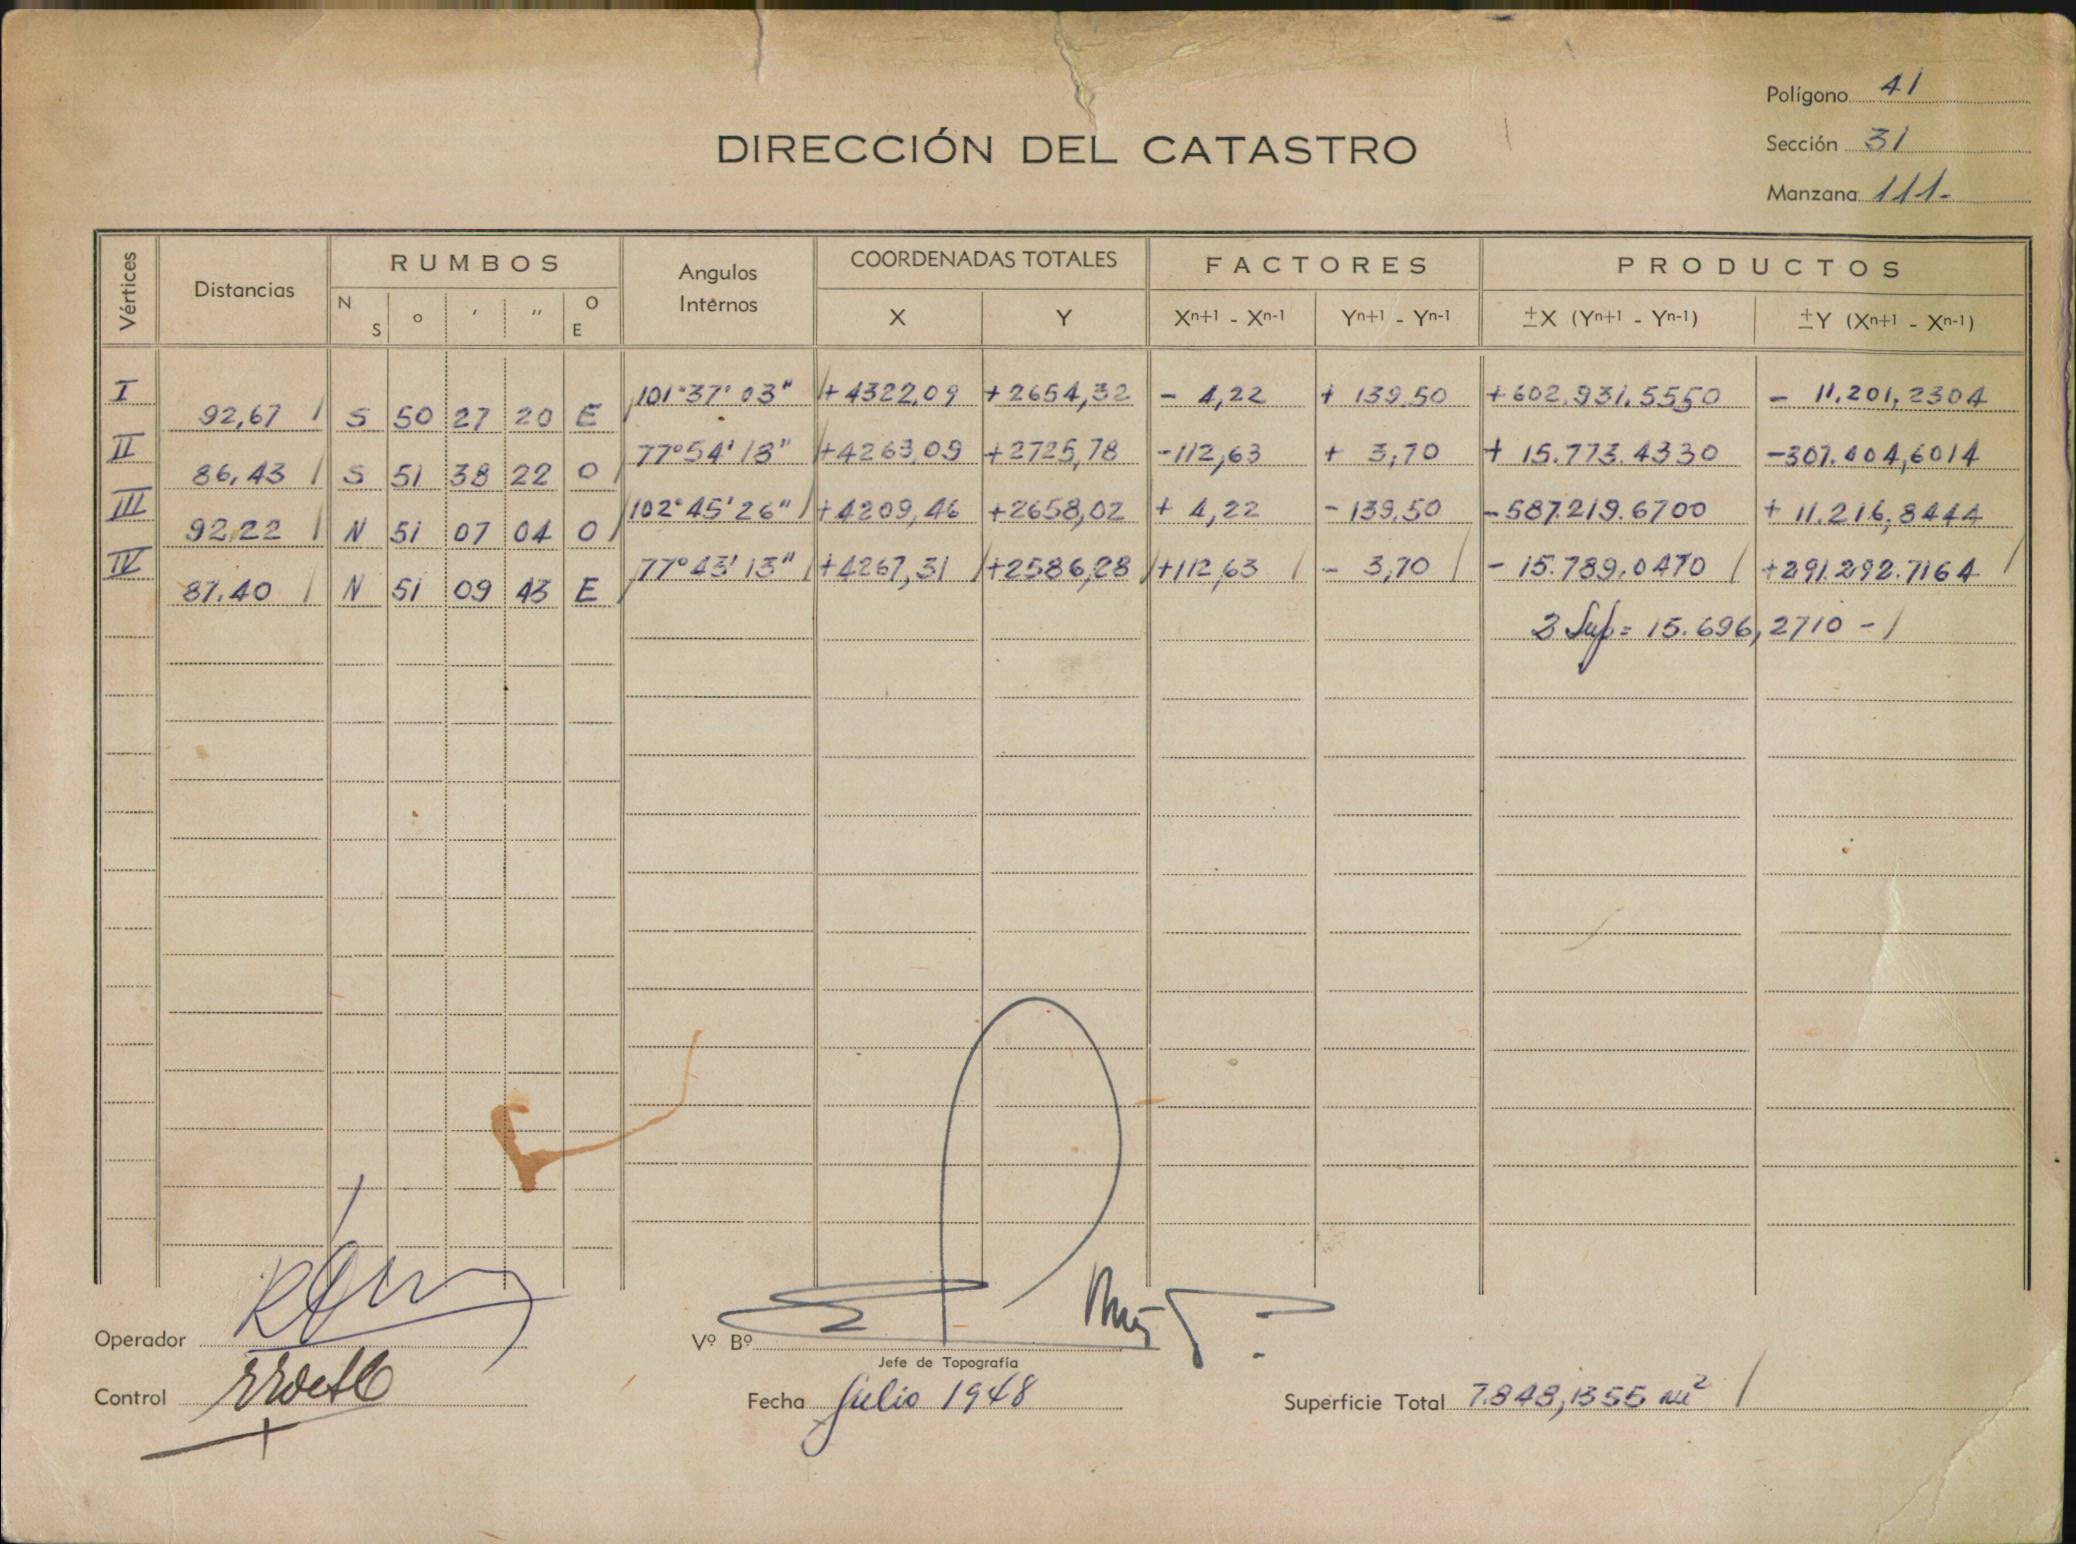 Polígono 41
DIRECCIÓN DEL CATASTRO
Sección 31
Manzana 111.
Vértices Distancias RUMBOS Angulos Internos COORDENADAS TOTALES FACTORES PRODUCTOS
N S ° ' " O E X Y Xn+1 - Xn-1 Yn+1 - Yn-1 ±X (Yn+1 - Yn-1) ±Y (Xn+1 - Xn-1)
I 101°37'03" +4322,09 +2654,32 - 4,22 + 139.50 +602.931.5550 - 11.201,2304
92,67 S 50 27 20 E
II 77°54'18" +4263,09 +2725,78 -112,63 + 3,70 + 15.773.4330 -307.004,6014
86,43 S 51 38 22 O
III 102°45'26" +4209,46 +2658,02 + 4,22 - 139.50 -587.219.6700 + 11.216,8444
92,22 N 51 07 04 O
IV 77°43'13" +4267,31 +2586,28 +112,63 - 3,70 - 15.789,0470 +291.292.7164
87.40 N 51 09 43 E
2 Sup= 15.696,2710 -
Operador
Vº Bº
Jefe de Topografía
Control
Fecha Julio 1948
Superficie Total 7.848,1355 m²